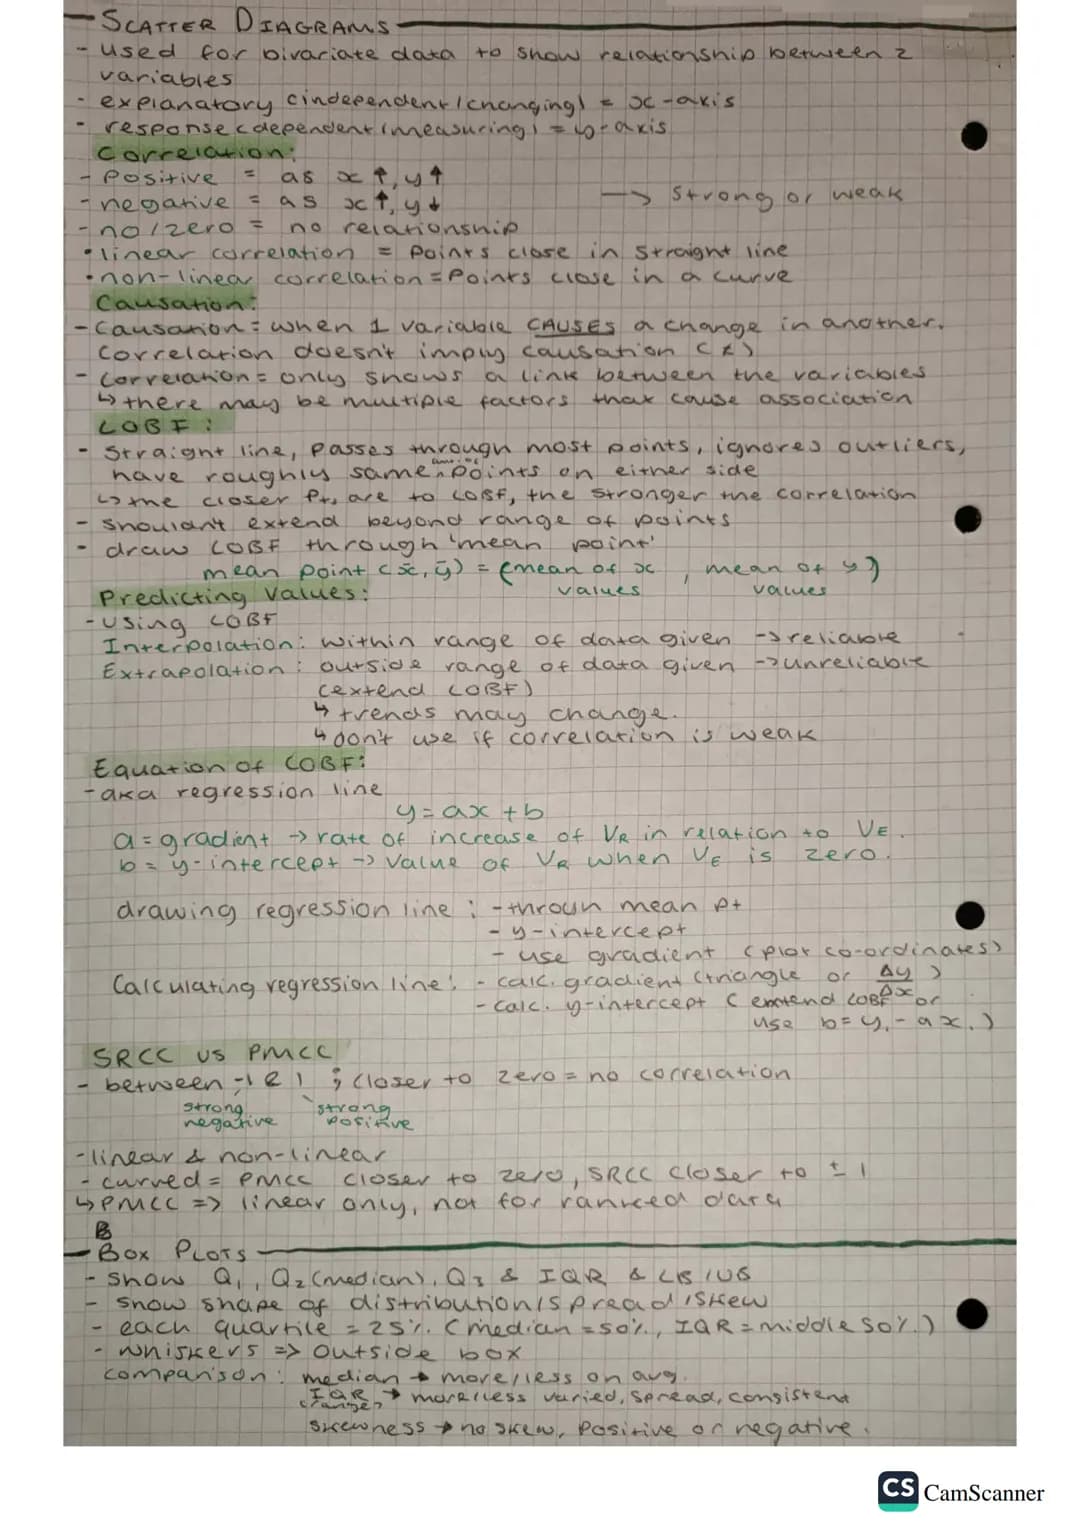 SCATTER DIAGRAMS
- used for bivariate data to show relationship between 2
variables
- explanatory (independent / changing) = x-axis
- response (dependent (measuring) = y-axis
Correlation:
- Positive = as x ↑, y ↑
- negative = as x ↑, y ↓ → strong or weak
- no / zero = no relationship
• linear correlation = points close in straight line
• non-linear correlation = Points close in a curve
Causation:
- Causation = when 1 variable CAUSES a change in another.
Correlation doesn't imply causation (≠)
- Correlation = only shows a link between the variables
↳ there may be multiple factors that cause association
LOBF:
- Straight line, passes through most points, ignores outliers,
have roughly same points on either side
↳ the closer pts are to LOBF, the stronger the correlation
- Shouldn't extend beyond range of points
- draw LOBF through 'mean point'
mean point (x̄, ȳ) = (mean of x values, mean of y values)
Predicting Values:
- using LOBF
Interpolation: within range of data given → reliable
Extrapolation: outside range of data given → unreliable
(extend LOBF)
↳ trends may change.
↳ don't use if correlation is weak
Equation of LOBF:
- aka regression line
y = ax + b
a = gradient → rate of increase of VR in relation to VE.
b = y-intercept → value of VR when VE is zero.
drawing regression line: - throun mean pt
- y-intercept
- use gradient (plot co-ordinates)
Calculating regression line: - calc. gradient (triangle or Δy/Δx)
- calc. y-intercept (extend LOBF or
use b = y₁ - ax₁)
SRCC vs PMCC
- between -1 & 1 ; closer to zero = no correlation
strong negative strong positive
- linear & non-linear
- curved = PMCC closer to zero, SRCC closer to ± 1
↳ PMCC => linear only, not for ranked data
B
BOX PLOTS
- show Q₁, Q₂ (median), Q₃ & IQR & LB / UB
- show shape of distribution / spread / skew
- each quartile = 25%. (median = 50%, IQR = middle 50%.)
- whiskers => outside box
comparison: median → more/less on avg.
IQR (range) → more/less varied, spread, consistent
skewness → no skew, positive or negative.
CS CamScanner